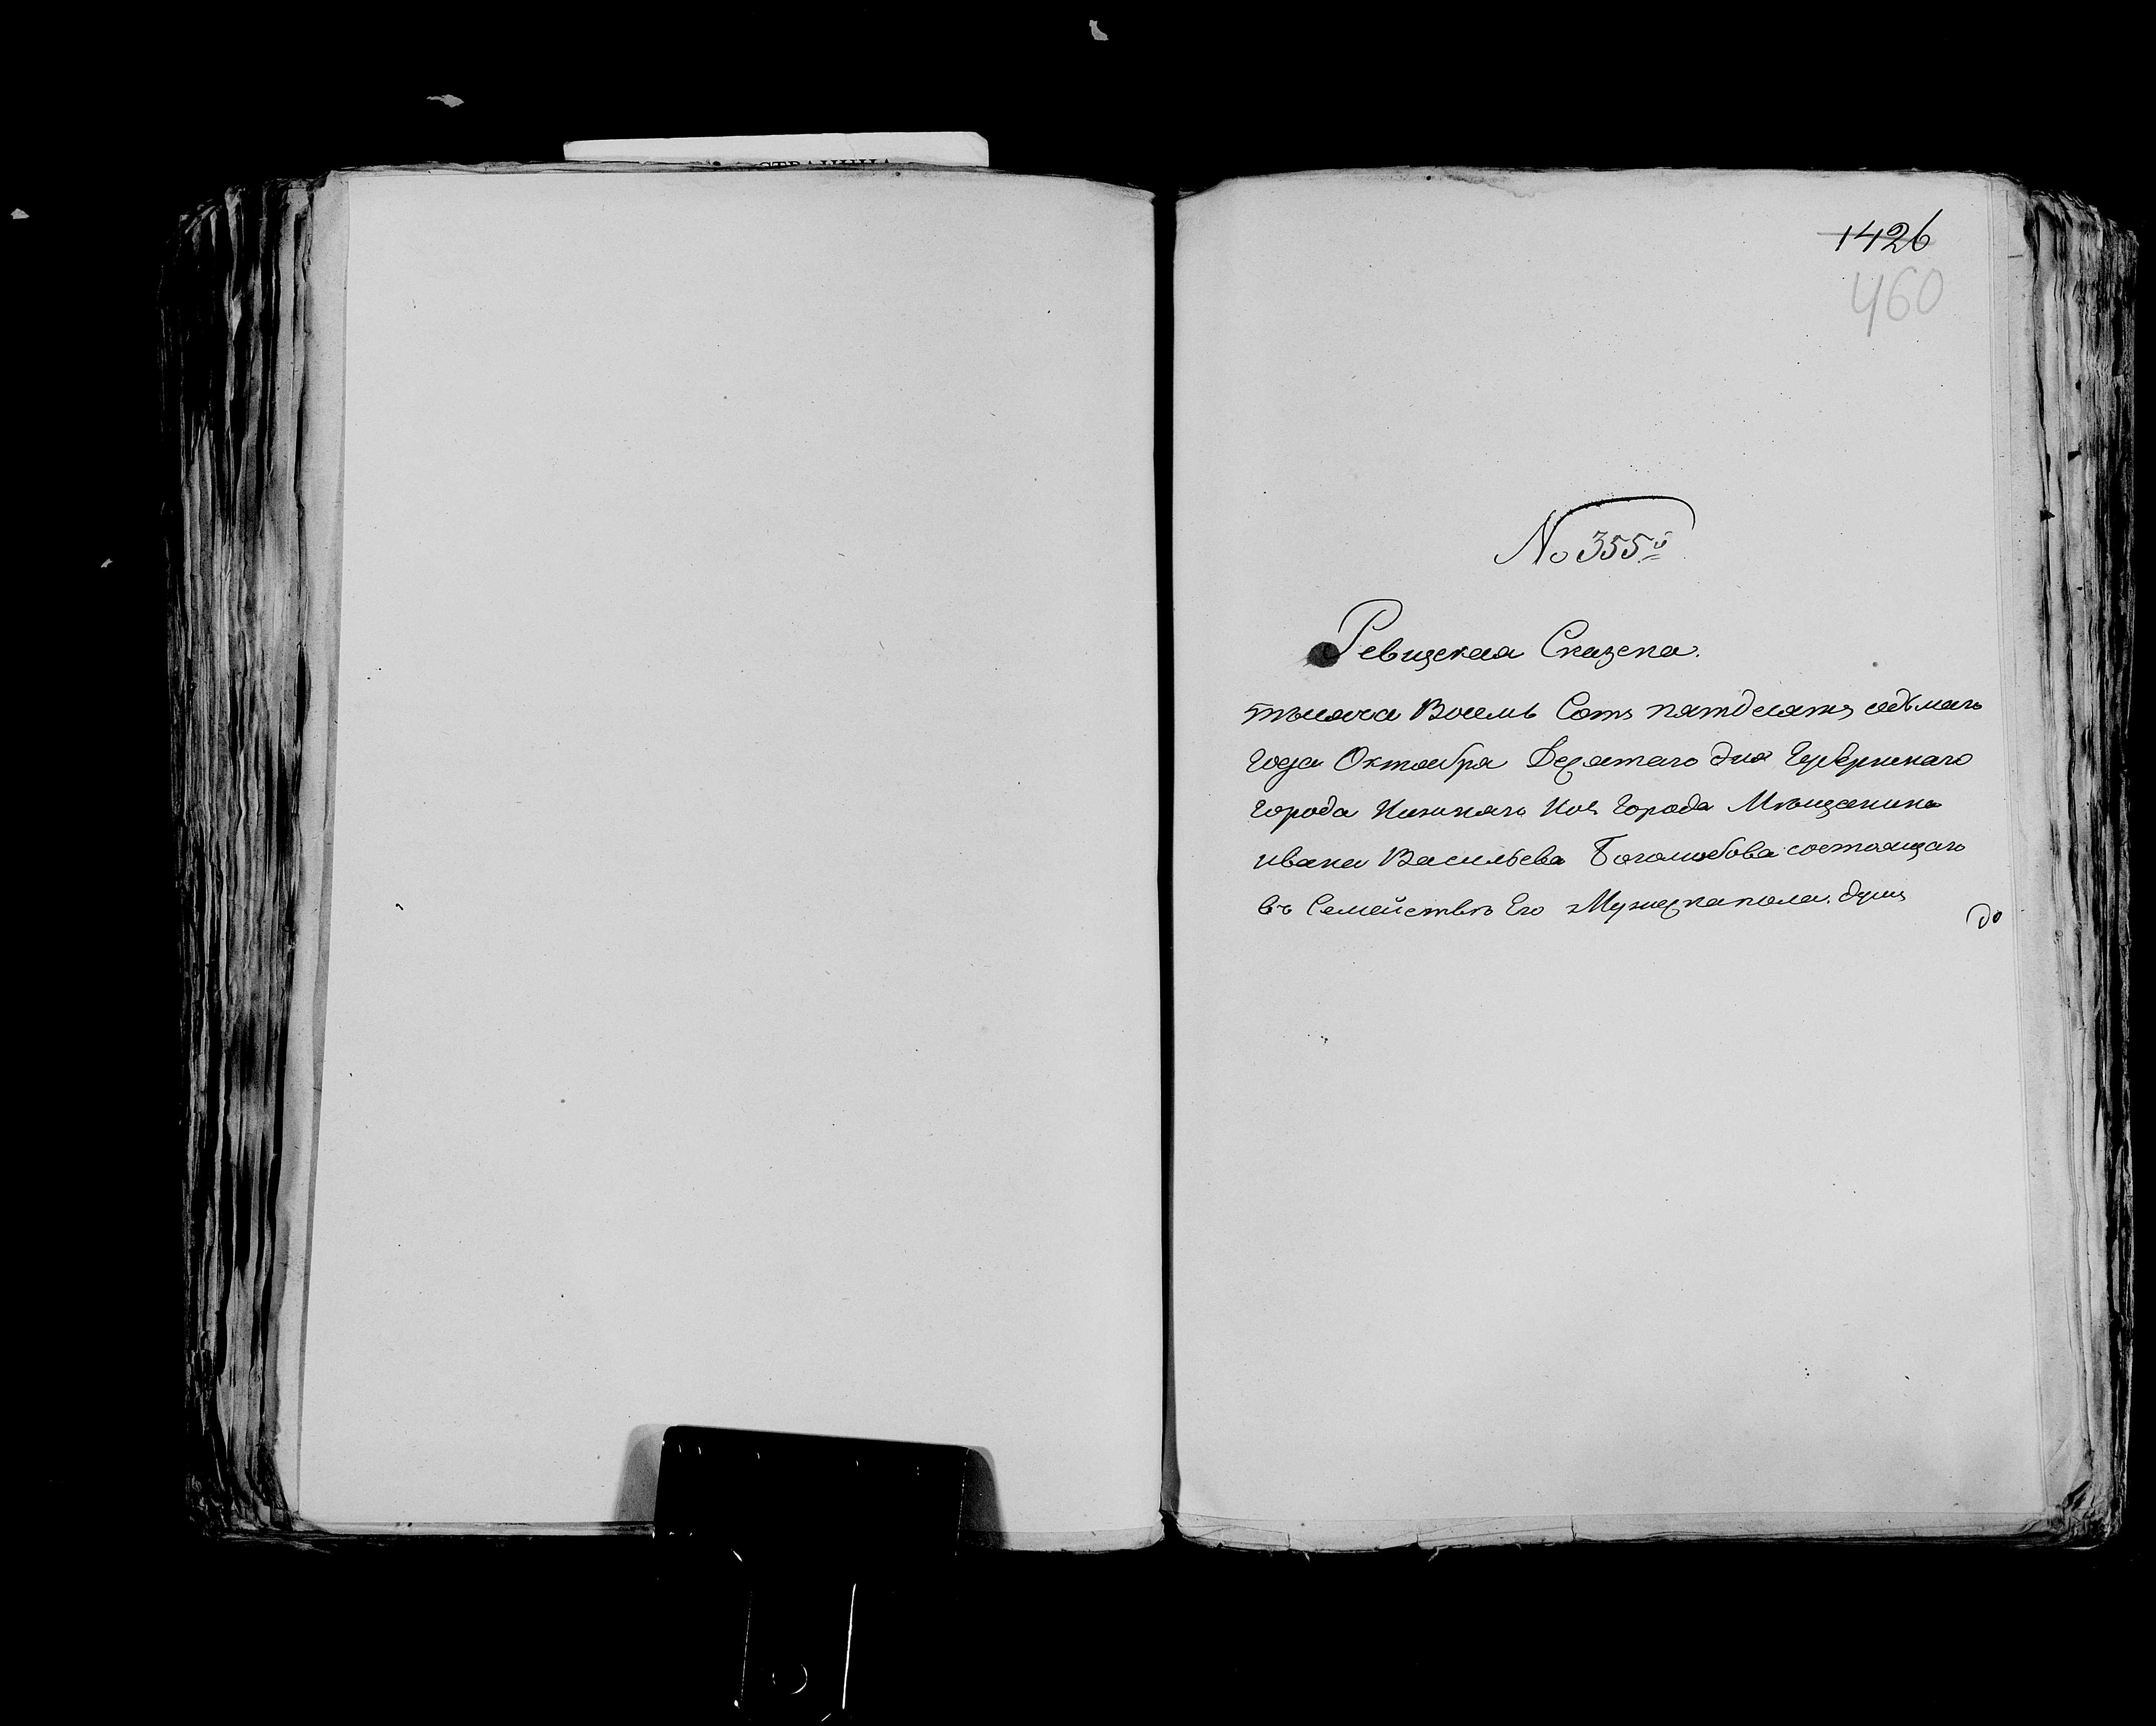 СТРАНИЦА
1426
460
No 355й
Ревизская Сказка.
тысяча Восемь Сотъ пятдесятъ седмаго
года Октября Десятаго дня Губернскаго
города Нижняго Нов Города Мѣщанина
ивана Васильева Боголюбова состоящаго
въ Семействѣ Его Мужеска пола. душъ
до